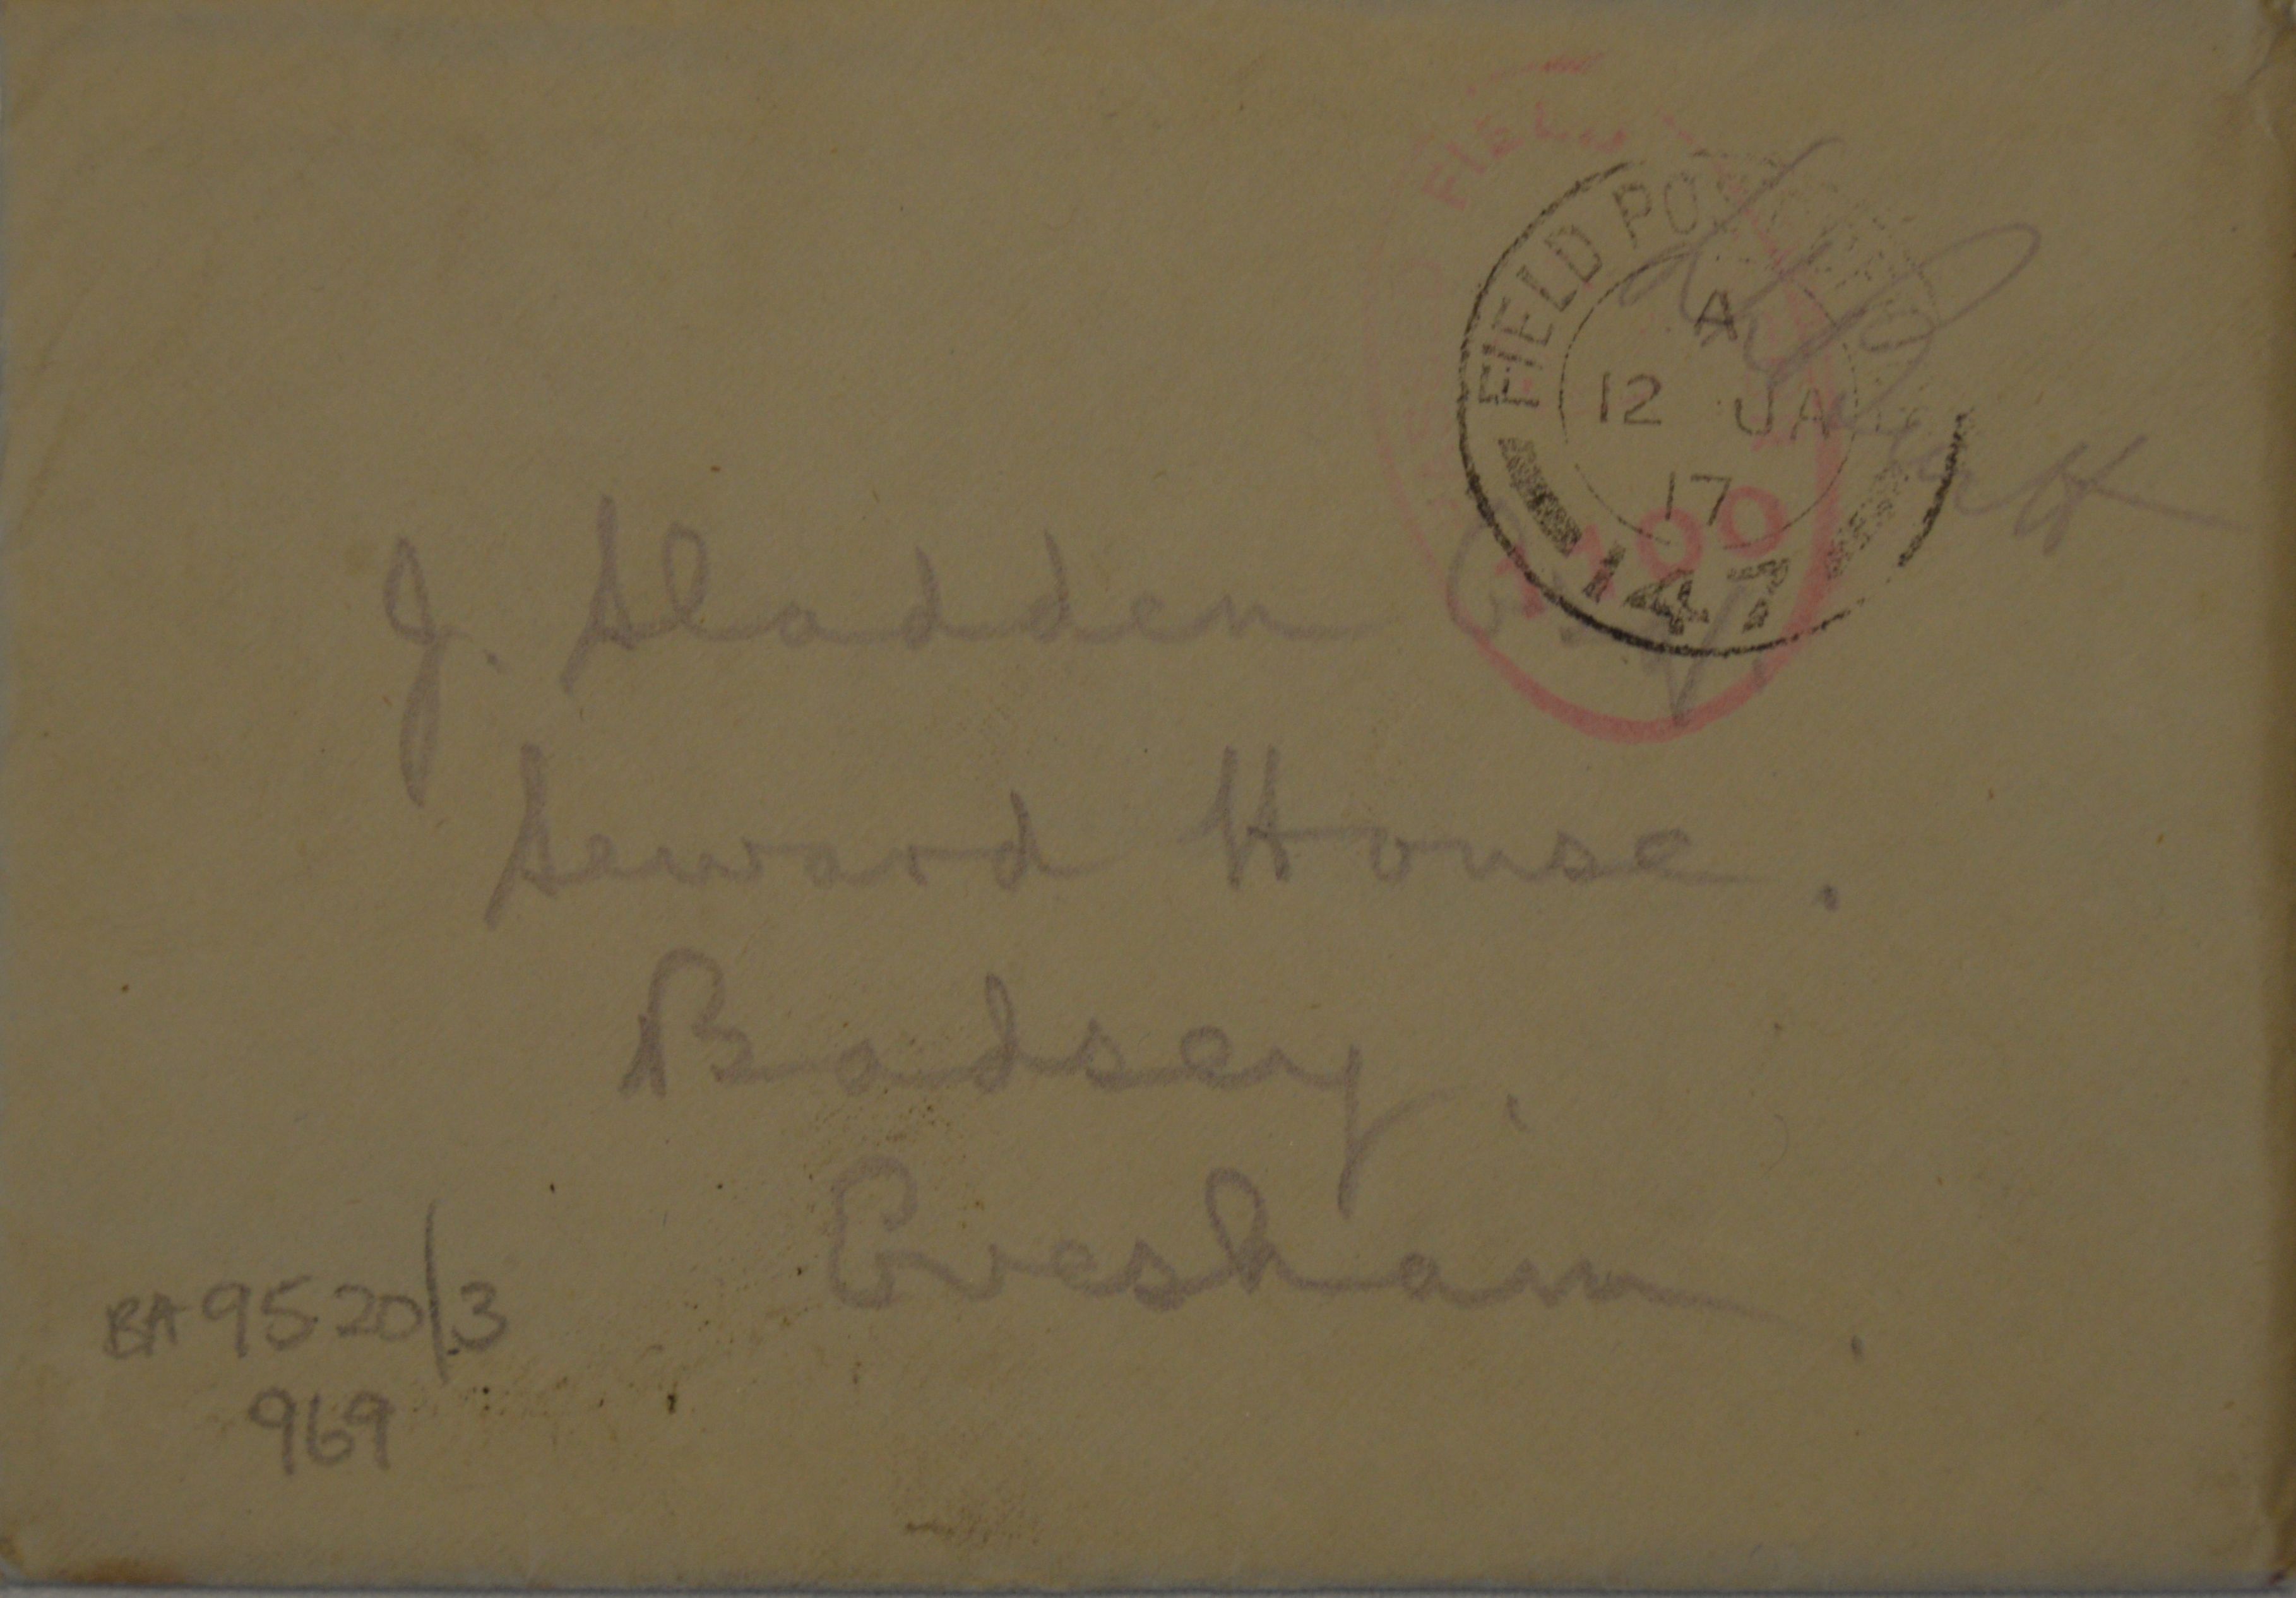 FIELD PO
A
12 JA
17
147
FIEL
1100
J. Sladden Esq.
Seward House.
Badsey.
Evesham.
BA 9520/3
969